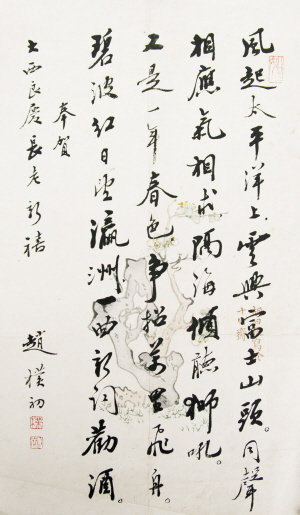 風起太平洋上雲興富士山頭。同聲
相應氣相求隔海傾聽獅吼。
又是一年春色爭招萬里飛舟。
碧波紅日望瀛洲一曲新词勸酒。
奉賀
大西良慶長老新禧
趙樸初